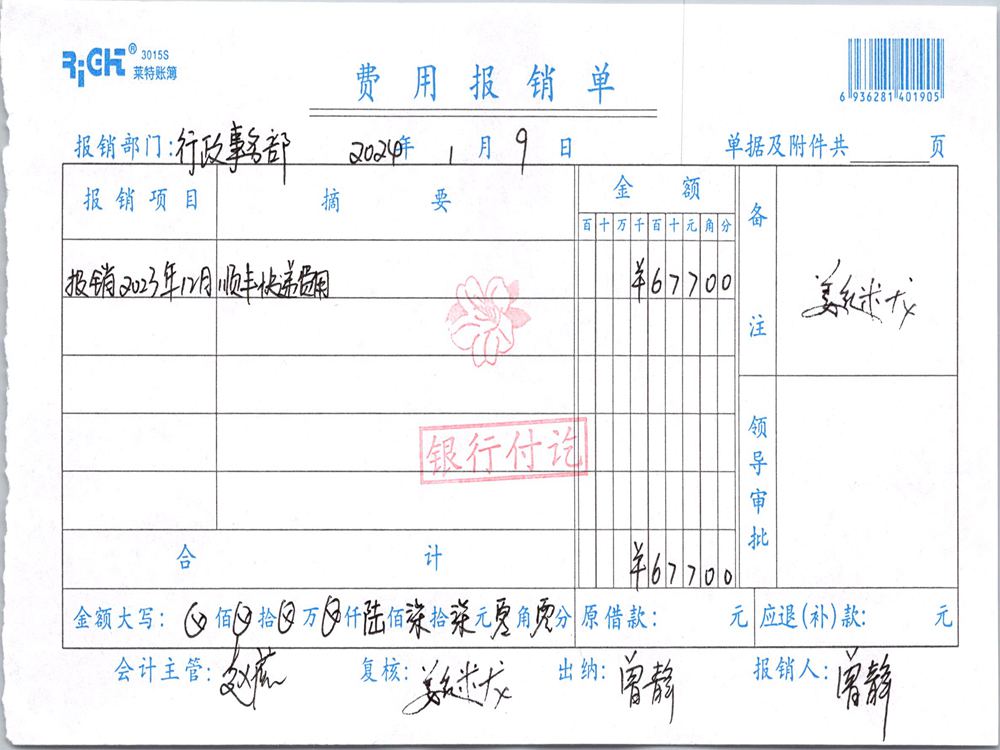 RiGHT® 3015S
莱特账簿
费用报销单
6 936281 401905
报销部门:行政事务部 2024年 1 月 9 日 单据及附件共 页
报销项目 摘要 金额 备注
百十万千百十元角分
报销2023年12月顺丰快递费用 ¥67700
银行付讫
领导审批
合计 ¥67700
金额大写: ⊗佰⊗拾⊗万⊗仟陆佰柒拾柒元零角零分 原借款: 元 应退(补)款: 元
会计主管: 复核: 出纳:曾静 报销人:曾静